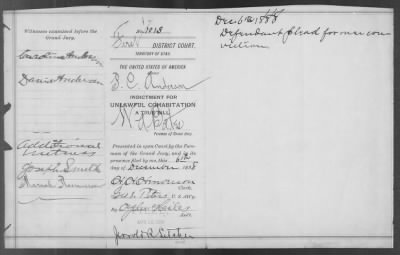 Witnesses examined before the
Grand Jury.
Caroline Anderson
David Anderson
Additional
witness
Joseph Smith
No. 1013
First DISTRICT COURT,
TERRITORY OF UTAH.
THE UNITED STATES OF AMERICA
Anderson
INDICTMENT FOR
UNLAWFUL COHABITATION
A TRUE BILL
Foreman of Grand Jury.
Presented in open Court by the Fore-
man of the Grand Jury, and in its
presence filed by me, this 6th
day of December 1888
Clerk.
Geo. S. Peters, U. S. Att'y.
By Ogden Hiles
Asst.
Dec 6th 1888
Defendant plead former con
viction